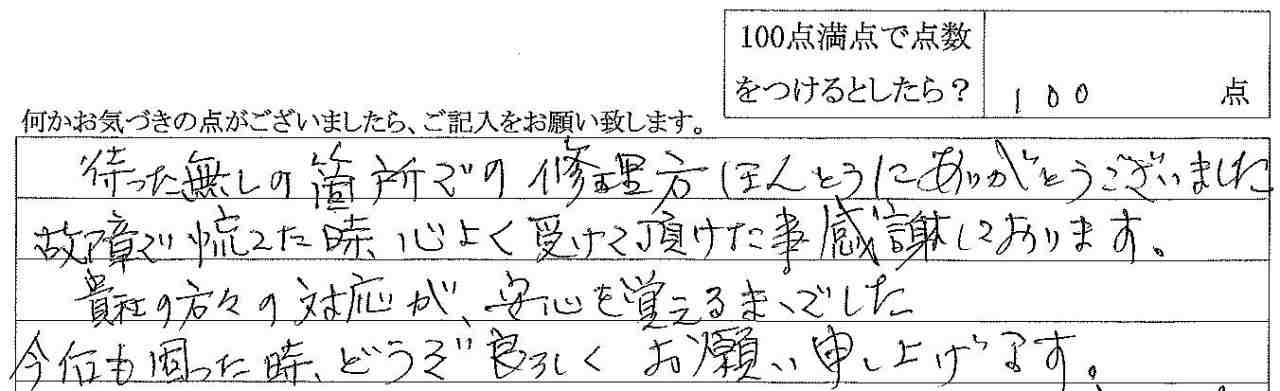 100点満点で点数
をつけるとしたら？
100 点
何かお気づきの点がございましたら、ご記入をお願い致します。
待った無しの箇所での修理方ほんとうにありがとうございました
故障で慌てた時、心よく受けて頂けた事感謝しております。
貴社の方々の対応が、安心を覚えるまでした
今后も困った時、どうぞ良ろしくお願い申し上げます。